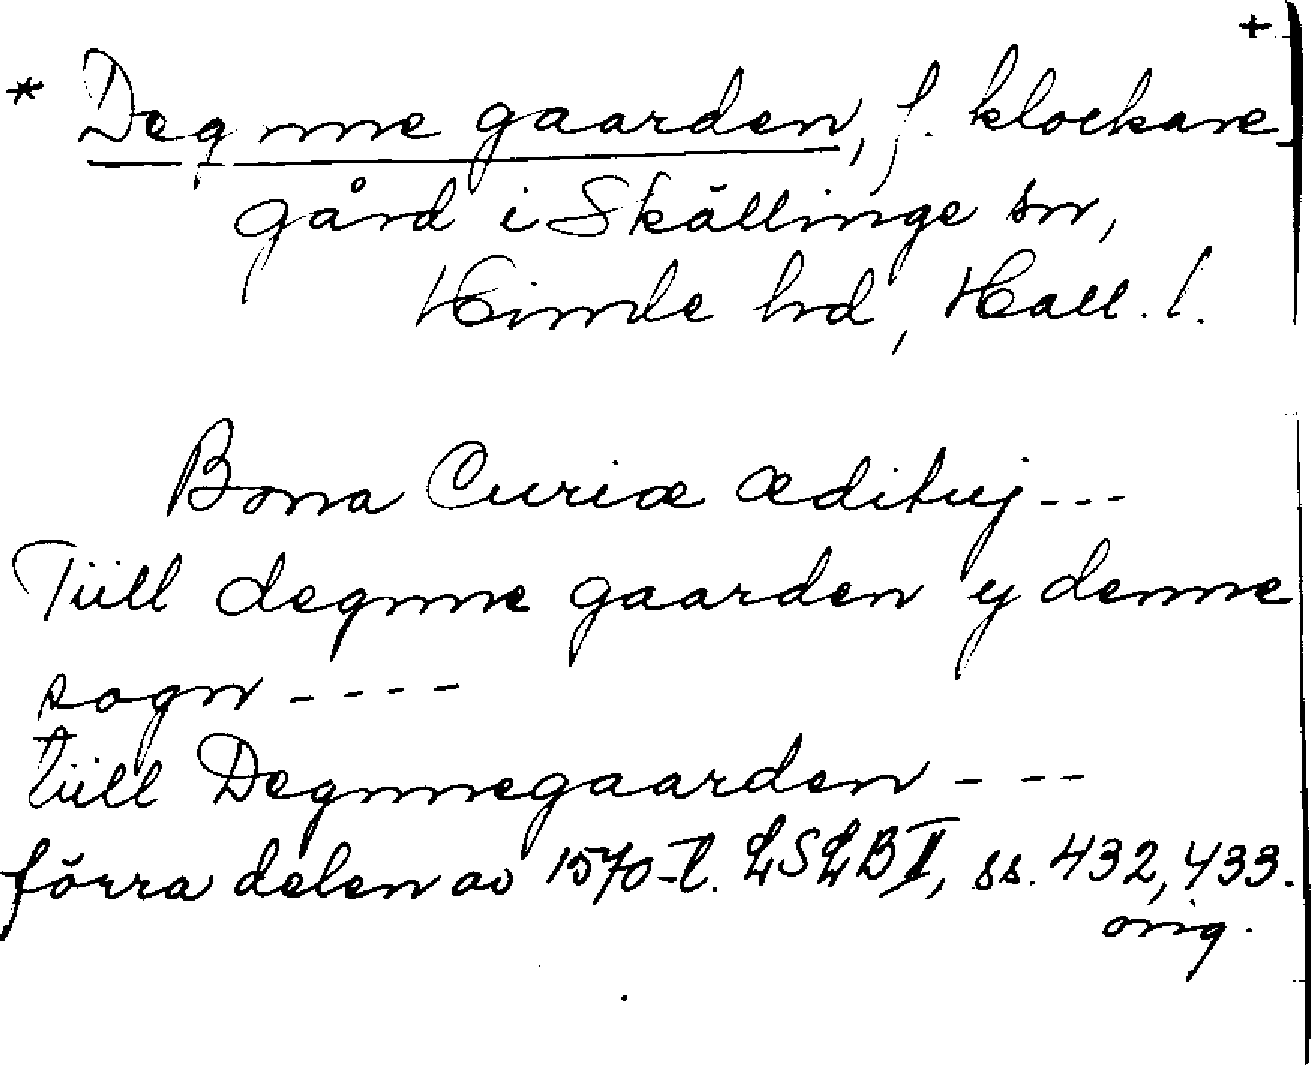 +
* Degnne gaarden, f. klockare-
gård i Skällinge sn,
Himle hd, Hall. l.
Bona Curiæ ædituj ---
Tiill degnne gaarden y denne
sogn ----
tiill Degnnegaarden ---
förra delen av 1570-t. LSLB II, ss. 432, 433.
orig.